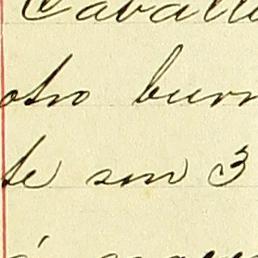 Caballe
otro burr
te son 3